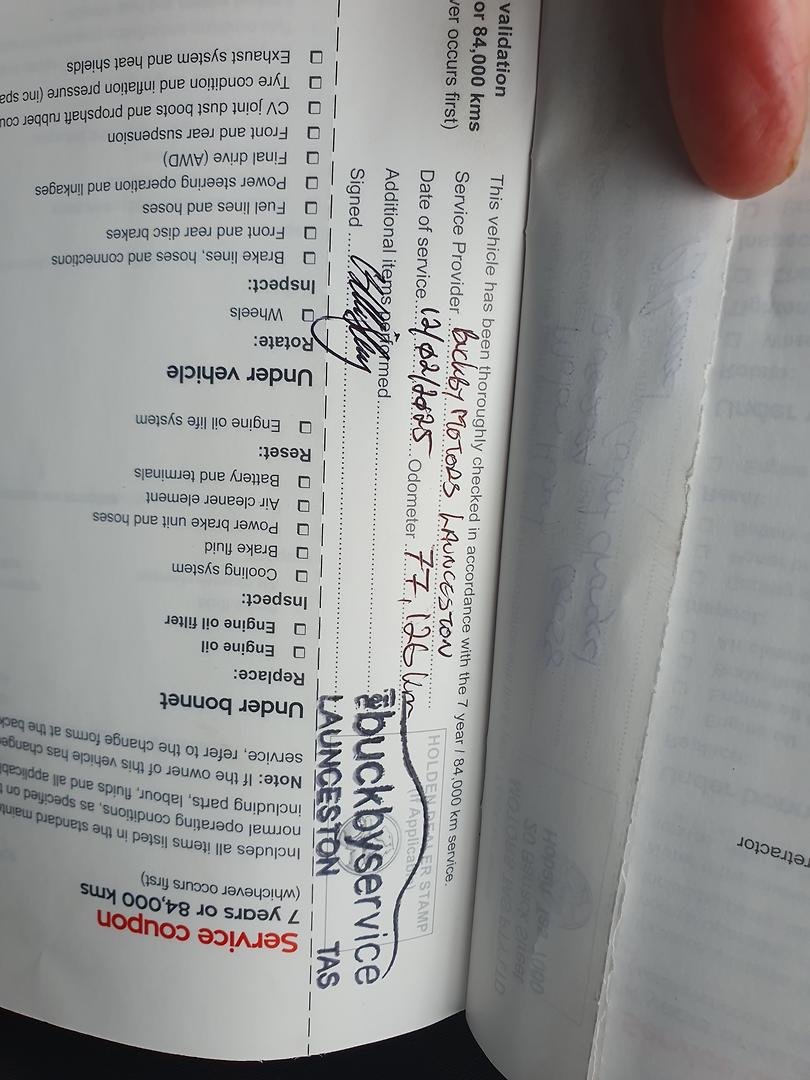 validation
or 84,000 kms
ver occurs first)
This vehicle has been thoroughly checked in accordance with the 7 year / 84,000 km service.
Service Provider Buckby Motors Launceston
Date of service 12/02/2025 Odometer 77,126 km
Additional items performed
Signed
HOLDEN DEALER STAMP
(If Applicable)
buckbyservice
LAUNCESTON TAS
Service coupon
7 years or 84,000 kms
(whichever occurs first)
Includes all items listed in the standard
normal operating conditions, as specified on
including parts, labour, fluids and all
Note: If the owner of this vehicle has
service, refer to the change forms at the back
Under bonnet
Replace:
Engine oil
Engine oil filter
Inspect:
Cooling system
Brake fluid
Power brake unit and hoses
Air cleaner element
Battery and terminals
Reset:
Engine oil life system
Under vehicle
Rotate:
Wheels
Inspect:
Brake lines, hoses and connections
Front and rear disc brakes
Fuel lines and hoses
Power steering operation and linkages
Final drive (AWD)
Front and rear suspension
CV joint dust boots and propshaft rubber
Tyre condition and inflation pressure (inc
Exhaust system and heat shields
retractor